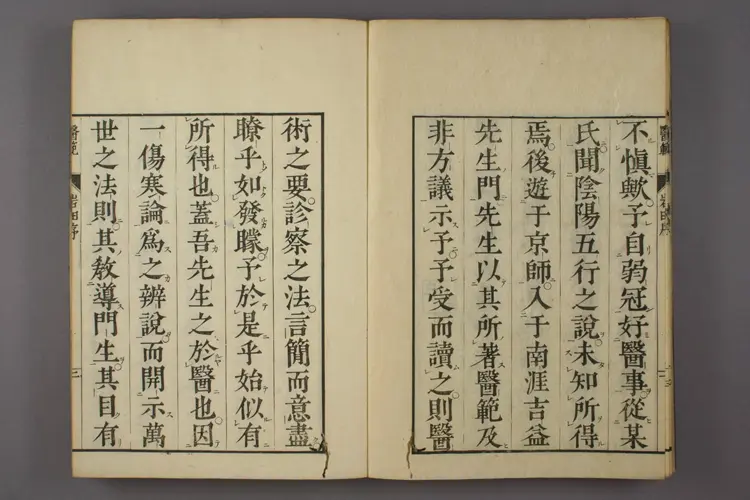 不愼歟予自弱冠好醫事從某
氏聞陰陽五行之說未知所得
焉後遊于京師入于南涯吉益
先生門先生以其所著醫範及
非方議示予予受而讀之則醫
術之要診察之法言簡而意盡
瞭乎如發矇予於是乎始似有
所得也蓋吾先生之於醫也因
一傷寒論爲之辨說而開示萬
世之法則其敎導門生其目有